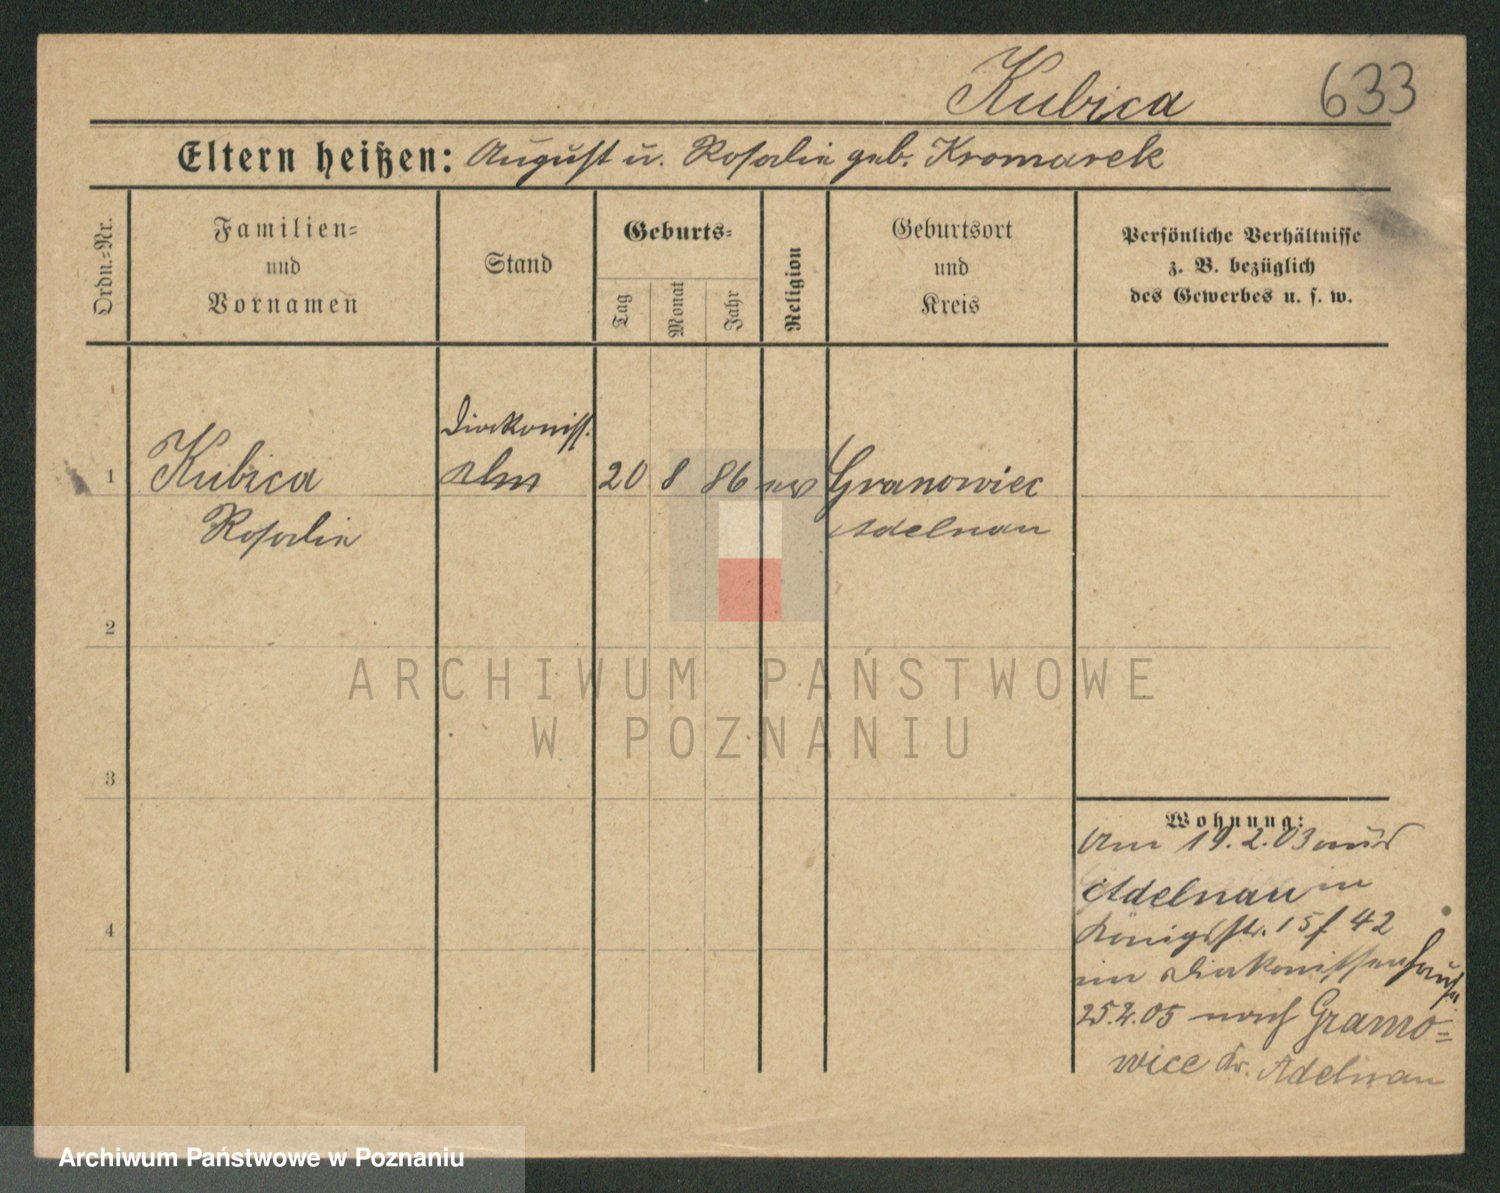 Kubica 633
Eltern heißen: August u. Rosalie geb. Kromarek
Ordn.-Nr.
Familien-
und
Vornamen
Stand
Geburts-
Tag
Monat
Jahr
Religion
Geburtsort
und
Kreis
Persönliche Verhältnisse
z. B. bezüglich
des Gewerbes u. s. w.
Diakoniss.
1 Kubica 20 8 86 ev Granowiec
Rosalie Adelnau
2
ARCHIWUM PAŃSTWOWE
W POZNANIU
3
Wohnung:
Am 19.2.03 aus
Adelnau in
Königsstr. 15 f 42
im Diakonissenhause
25.2.05 nach Gramo-
wice Kr. Adelnau
4
Archiwum Państwowe w Poznaniu